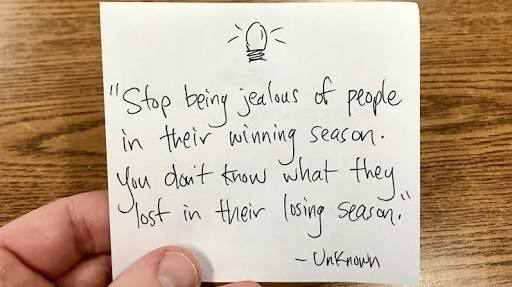 "Stop being jealous of people
in their winning season.
You don't know what they
lost in their losing season."
- Unknown